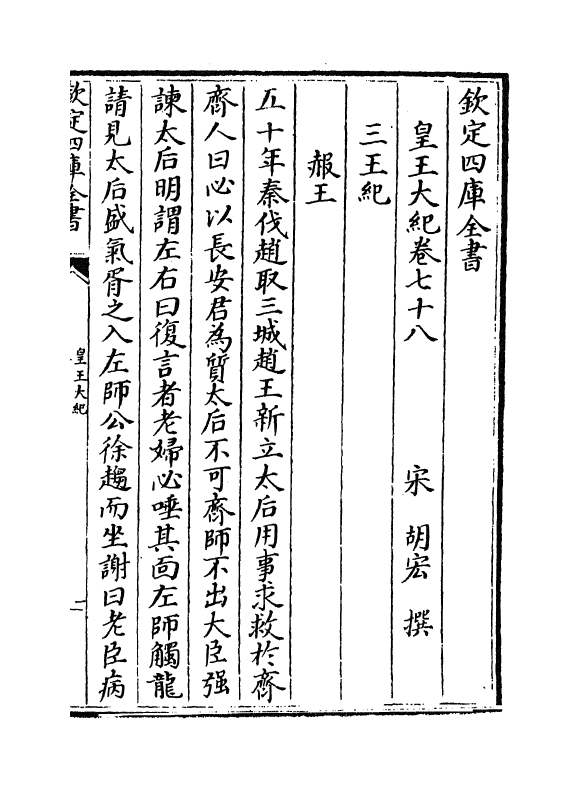 欽定四庫全書
皇王大紀卷七十八
宋 胡宏 撰
三王紀
赧王
五十年秦伐趙取三城趙王新立太后用事求救於齊
齊人曰必以長安君為質太后不可齊師不出大臣强
諫太后明謂左右曰復言者老婦必唾其面左師觸龍
請見太后盛氣胥之入左師公徐趨而坐謝曰老臣病
欽定四庫全書
皇王大紀